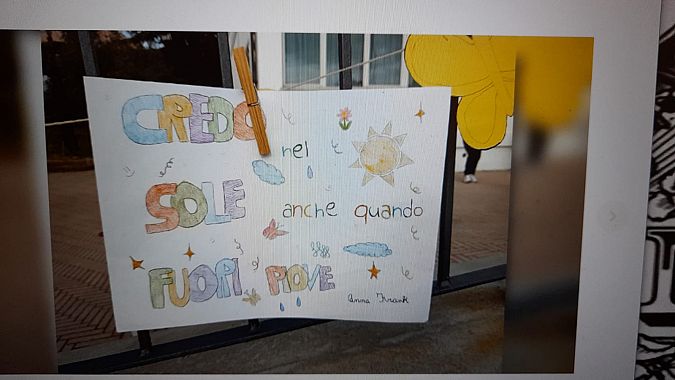 CREDO nel
SOLE anche quando
FUORI PIOVE
Anna Frank